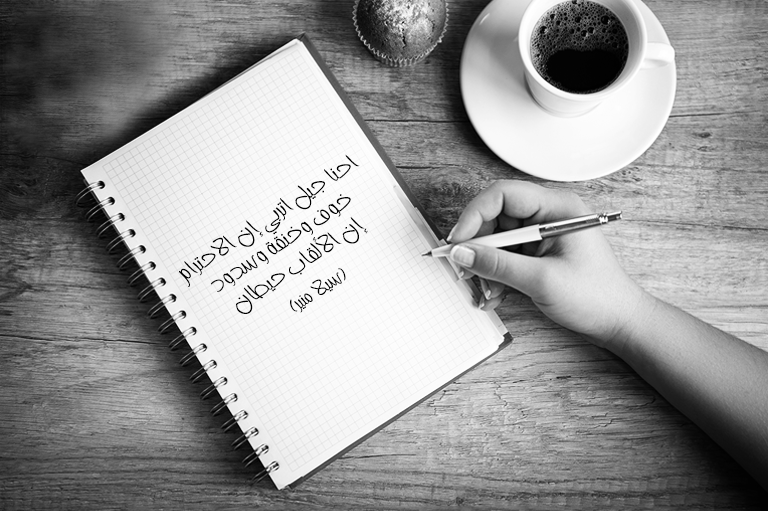 احنا جيل اتربي إن الاحترام
خوف وخنقة وسدود
إن الألقاب حيطان
(سيلا منير)